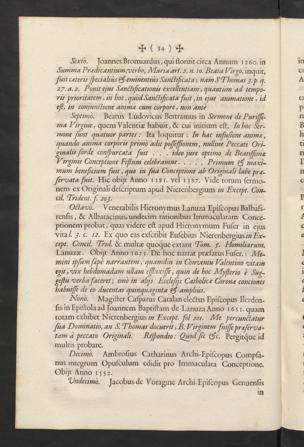 ✠ ( 14 ) ✠
Sextò. Joannes Bromiardus, qui floruit circa Annum 1260. in
Summa Prædicantium, verbo, Maria art. 2. n. 10. Beata Virgo, inquit,
fuit ceteris specialiùs & eminentiùs Sanctificata: nam S. Thomas 3. p. q.
27. a. 2. Ponit ejus Sanctificationis excellentiam, quantùm ad tempo-
ris prioritatem, in hoc, quòd Sanctificata fuit, in ejus animatione, id
est, in conjunctione animæ cum corpore, non ante
Septimò. Beatus Ludovicus Bertramus in Sermone de Purissi-
ma Virgine, quem Valentiæ habuit, & cui initium est. In hoc Ser-
mone sunt quatuor partes: Ita loquitur: In hac infusione animæ,
quando anima corporis primò adit possessionem, nullum Peccati Ori-
ginalis sorde consurcata fuit . . . . . eâdem jure optimo de Beatissimæ
Virginis Conceptione Festum celebramus . . . . . Primum & maxi-
mum beneficium fuit, quo in sua Conceptione ab Originali labe præ-
servata fuit. Hic obiit Anno 1581. vel 1587. Vide totum sermo-
nem ex Originali descriptum apud Nierembergium in Except. Con-
cil. Trident. f. 203.
Octavò. Venerabilis Hieronymus Lanuza Episcopus Balbasi-
rensis, & Albaracinus, undecim rationibus Immaculatam Conce-
ptionem probat, quas videre est apud Hieronymum Fuser in ejus
vita l. 3. c. 12. Ex quo eas exscribit Eusebius Nierembergius in Ex-
cept. Concil. Trid. & multæ quoque extant Tom. 3. Homiliarum.
Lanuzæ. Obiit Anno 1625. De hoc narrat præfatus Fuser. Me-
mini ipsum sæpè narrantem, quamdiu in Conventu Valentino vitam
egit, vix hebdomadam ullam effluxisse, quin de hoc Mysterio è Sug-
gestu verba faceret; imò in aliis Ecclesiis Catholica Corona conciones
habuisse de eo ducentas quinquaginta & ampliùs.
Nonò. Magister Casparus Catalan electus Episcopus Ilerden-
sis in Epistola ad Joannem Baptistam de Lanuza Anno 1651. quam
totam exhibet Nierembergius in Except. fol 201. Me percunctatur
sua Dominatio, an S. Thomas docuerit, B. Virginem fuisse præserva-
tam à peccato Originali. Respondeo: Quòd sic &c. Pergitque id
multis probare.
Decimò. Ambrosius Catharinus Archi-Episcopus Compsa-
nus integrum Opusculum edidit pro Immaculata Conceptione.
Obiit Anno 1552.
Undecimò. Jacobus de Voragine Archi-Episcopus Genuensis
in